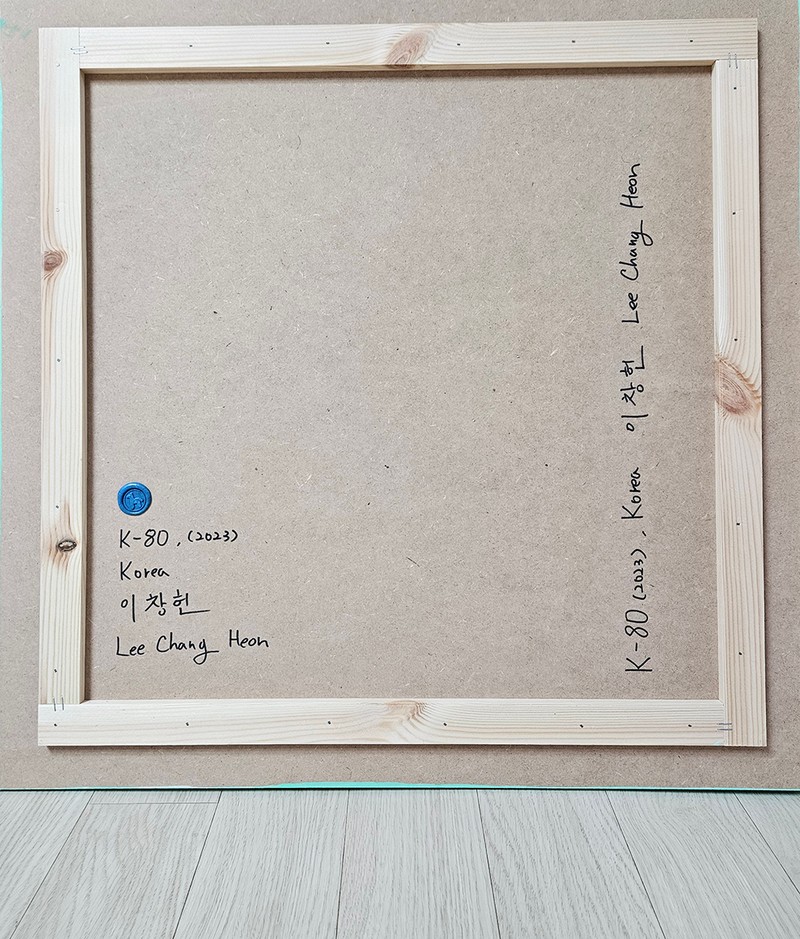 K-80, (2023)
Korea
이창헌
Lee Chang Heon
K-80 (2023), Korea 이창헌 Lee Chang Heon